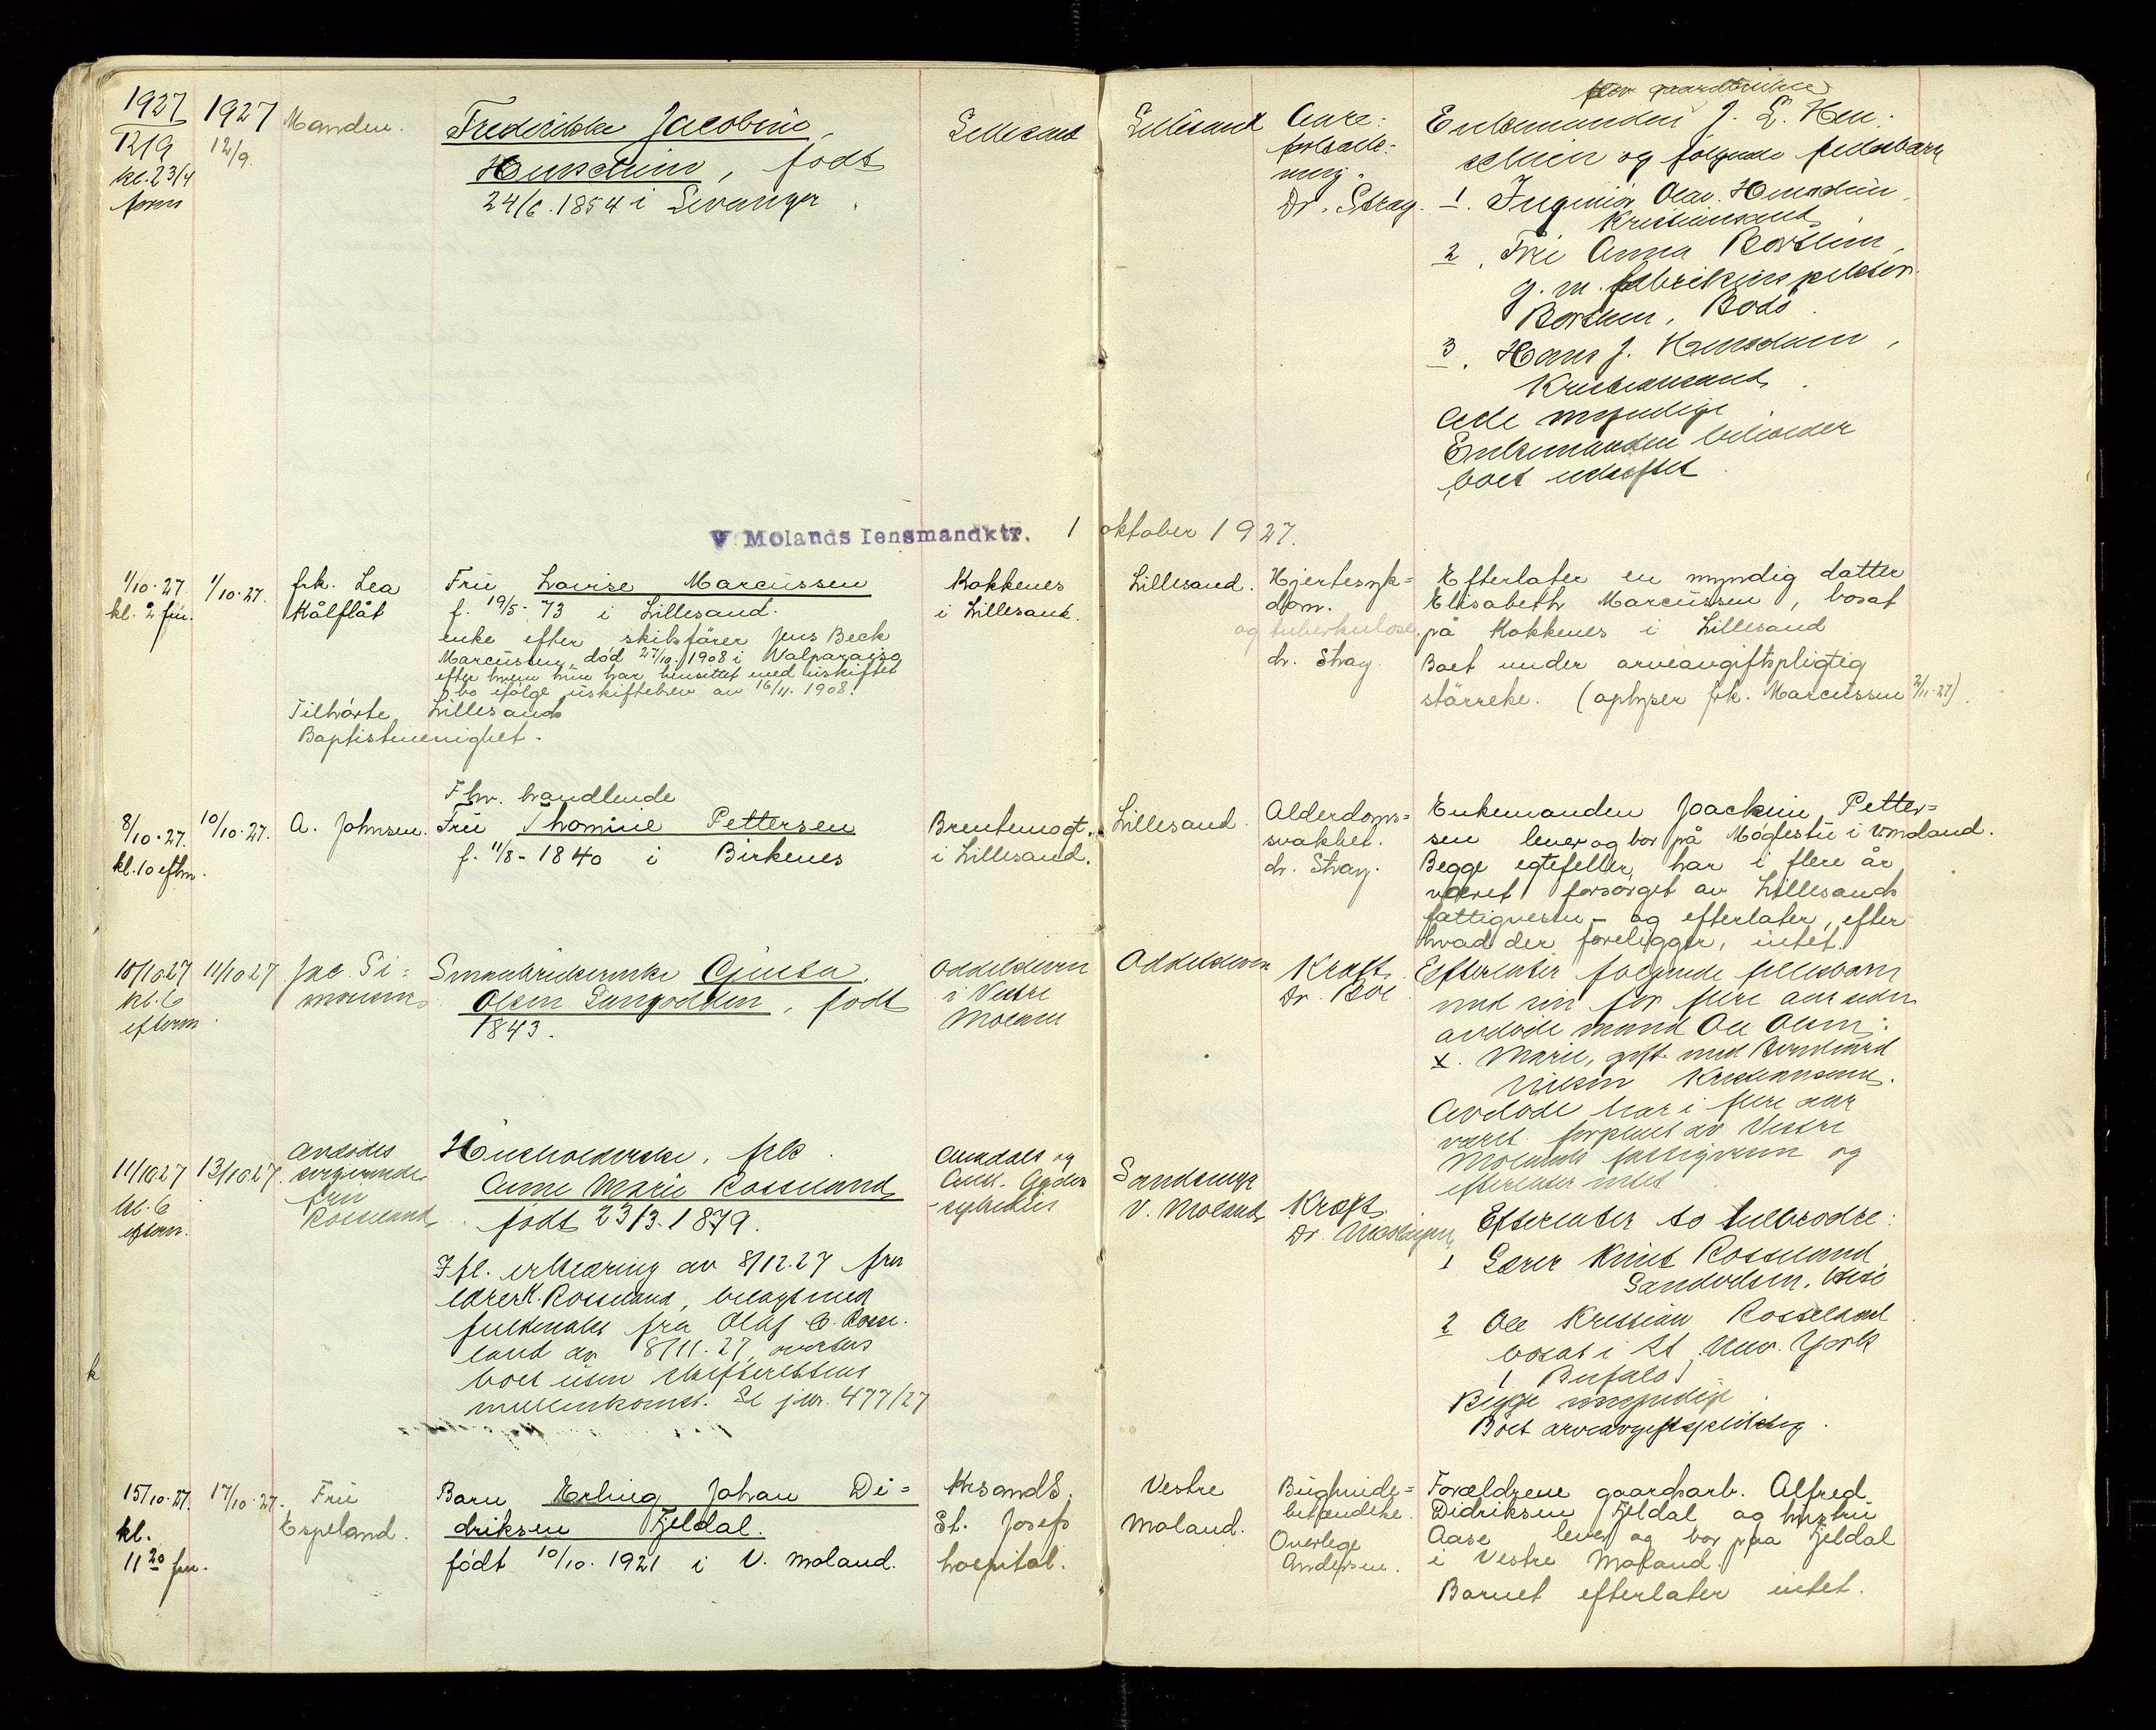 1927
12/9
kl. 2 3/4
form
1927
12/9.
Manden.
Frederikke Jacobine
Henschien, født
24/6. 1854 i Levanger.
Lillesand
Lillesand
Aare-
forkalk-
ning.
Dr. Stray.
Enkemanden J. L. Hen-
schien og følgende fellesbarn
1. Ingeniør Henschien,
Kristiansand
2. Fru Anna
g. m. fabrikinspektør
Bodø.
3. Hans J. Henschien,
Kristiansand.
Alle myndige
Enkemanden beholder
boet uskiftet.
V Molands lensmandktr. 1 oktober 1927.
1/10.27
kl. 2 fm.
1/10.27.
frk. Lea
Kålflåt
Fru Lovise Marcussen
f. 19/5-73 i Lillesand.
enke efter skibsfører Jens Beck
Marcussen, død 27/10. 1908 i Valparaiso
efter hvem hun har hensittet med uskiftet
bo ifølge uskiftebev av 16/11. 1908.
Tilhørte Lillesands
Baptistmenighet.
Kokkenes
i Lillesand.
Lillesand.
Hjertesyk=
dom.
og tuberkulose.
dr. Stray.
Efterlater en myndig datter
Elisabeth Marcussen, bosat
på Kokkenes i Lillesand
Boet under arveavgiftspligtig
størreke. (oplyser frk. Marcussen 2/11-27).
8/10.27.
kl. 10 eftm.
10/10.27.
A. Johnsen.
Fhv. handlende
Fru Thomine Pettersen
f. 11/8-1840 i Birkenes
Brentemogt.
i Lillesand.
Lillesand.
Alderdoms=
svakhet.
dr. Stray.
Enkemanden Joachim Petter=
sen lever og bor på Møglestu i V moland.
Begge egtefeller har i flere år
været forsørget av Lillesands
fattigvesen - og efterlater, efter
hvad der foreligger, intet.
10/10.27
kl. 6
efterm.
11/10 27
Jac. Si=
monsen
Olsen , født
1843.
i Vestre
Moland
Kræft.
Dr. Boe
Efterlater følgende fellesbarn
med sin for flere aar siden
avdøde mand Ole Olsen:
1. Marie, gift med Bernhard
Nilsen Kristiansand.
Avdøde har i flere aar
været forpleiet av Vestre
Molands fattigvesen og
efterlater intet.
11/10.27
kl. 6
efterm.
13/10.27.
Avdødes
svigerinde
fru
Rosseland
Husholderske, frk.
Anne Marie Rosseland
født 23/3. 1879.
Ifl. erklæring av 8/12.27 fra
lærer K. Rosseland, bilagt med
fuldmakt fra Olaf C. Rosse-
land av 8/11.27, overtas
boet uten skifterettens
mellemkomst. Se jnr. 477/27
Arendals og
Aust-Agder
sykehus
V. Moland
Kræft.
Efterlater to helbrødre:
1 Lærer Knut Rosseland,
2 Ole Kristian Rosseland
bosat i St. New York
(Bufalo)
Begge myndige.
Boet arveavgiftspliktig.
15/10.27.
kl.
11 20 fm.
17/10.27.
Fru
Espeland.
Barn Erling Johan Di=
driksen Fjeldal.
født 10/10. 1921 i V. Moland.
Krsand S.
St. Josefs
hospital.
Vestre
Moland.
Bughinde=
betændelse.
Overlege
Andersen.
Forældrene gaardsarb. Alfred
Didriksen Fjeldal og hustru
Aase lever og bor paa Fjeldal
i Vestre Moland.
Barnet efterlater intet.